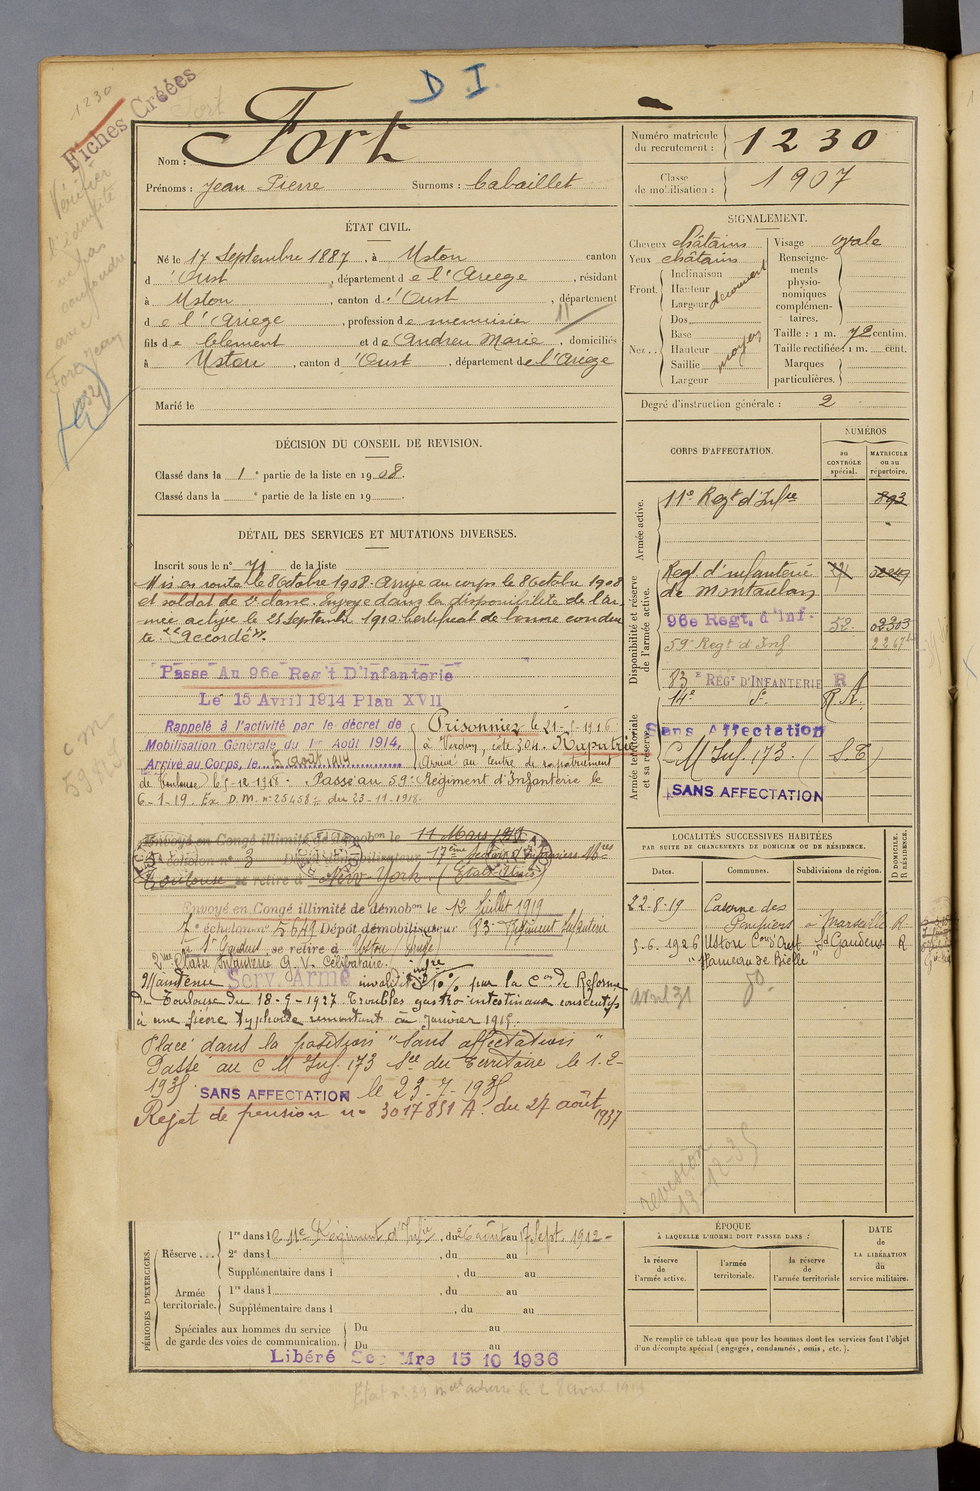 D I.
1230
Fiches Créées
Fort
Nom : Fort
Prénoms : Jean Pierre Surnoms : Cabaillet
Numéro matricule
du recrutement : 1230
Classe
de mobilisation : 1907
Vérifier
l'identité
ne pas
confondre
avec
Fort Jean
ÉTAT CIVIL.
Né le 17 Septembre 1887, à Uston canton
d'Oust, département de l'Ariège, résidant
à Uston, canton d'Oust, département
de l'Ariège, profession de menuisier
fils de Clément et de Andreu Marie, domiciliés
à Uston, canton d'Oust, département de l'Ariège
Marié le
SIGNALEMENT.
Cheveux châtains
Yeux châtains
Front. Inclinaison
Hauteur
Largeur découvert
Nez . . Dos
Base
Hauteur moyen
Saillie
Largeur
Visage ovale
Renseigne-
ments
physio-
nomiques
complémen-
taires.
Taille : 1 m. 72 centim.
Taille rectifiée : 1 m. cent.
Marques
particulières.
Degré d'instruction générale : 2
DÉCISION DU CONSEIL DE REVISION.
Classé dans la 1e partie de la liste en 1908.
Classé dans la e partie de la liste en 19
DÉTAIL DES SERVICES ET MUTATIONS DIVERSES.
Inscrit sous le n° 71 de la liste
Mis en route le 8 Octobre 1908. Arrivé au corps le 8 Octobre 1908
et soldat de 2e classe. Envoyé dans la disponibilité de l'ar-
mée active le 25 septembre 1910. Certificat de bonne condui-
te "Accordé".
Passé Au 96e Regt D'Infanterie
Le 15 Avril 1914 Plan XVII
Rappelé à l'activité par le décret de
Mobilisation Générale du 1er Août 1914.
Arrivé au Corps, le 5 août 1914
Prisonnier le 21-5-1916
à Verdun, côte 304. Rapatrié
Arrivé au Centre de rapatriement
de Toulouse le 5-12-1918. Passé au 59e Régiment d'Infanterie le
6-1-19. Ex. D.M. n° 25458 du 23-11-1918.
Envoyé en Congé illimité de démobon le 11 Mars 1919
échelon n° 3 Dépôt démobilisateur 17ème Section d'Infirmiers Mres
Toulouse se retire à New-York (Etats-Unis)
Envoyé en Congé illimité de démobon le 12 Juillet 1919
7e échelon n° 5649 Dépôt démobilisateur 83e Régiment Infanterie
à St Gaudens se retire à Uston (Ariège)
2me Classe Infanterie G.V. Célibataire.
Maintenu Serv. Armé invalidité infre 10% par la Con de Réforme
de Toulouse du 18-9-1927. Troubles gastro intestinaux consécutifs
à une fièvre typhoïde remontant à Janvier 1915.
Placé dans la position "Sans affectation"
Passé au C M Inf. 173 Sce du Territoire le 1-2-
1935 SANS AFFECTATION le 23-7-1935
Rejet de pension n° 3017851 A. du 27 août 1937
CORPS D'AFFECTATION.
NUMÉROS
au
CONTRÔLE
spécial.
MATRICULE
ou au
répertoire.
Armée active.
11e Regt d'Infie 893
Disponibilité et réserve
de l'armée active.
Regt d'infanterie
de Montauban
96e Regt. d'Inf. 52 02303
59e Regt d'Inf
83e RÉGt D'INFANTERIE R
14e R.A.
Armée territoriale
et sa réserve
Sans Affectation
C M Inf. 173 (S.T)
SANS AFFECTATION
LOCALITÉS SUCCESSIVES HABITÉES
PAR SUITE DE CHANGEMENTS DE DOMICILE OU DE RÉSIDENCE.
D DOMICILE.
R RÉSIDENCE.
Dates. Communes. Subdivisions de région.
22-8-19 Caserne des
Pompiers à Marseille R
5-6-1926 Uston Con Oust St Gaudens R
"Hameau de Bielle"
Avril 31
revision
13-12-35
PÉRIODES D'EXERCICES.
Réserve . . . 1re dans l e 11e Régiment d'Infie, du 26 août au 17 Sept. 1912
2e dans l , du au
Supplémentaire dans l , du au
Armée
territoriale. 1re dans l , du au
Supplémentaire dans l , du au
Spéciales aux hommes du service
de garde des voies de communication. Du au
Du au
Libéré Ser Mre 15 10 1936
ÉPOQUE
À LAQUELLE L'HOMME DOIT PASSER DANS :
la réserve
de
l'armée active.
l'armée
territoriale.
la réserve
de
l'armée territoriale
DATE
de
LA LIBÉRATION
du
service militaire.
Ne remplir ce tableau que pour les hommes dont les services font l'objet
d'un décompte spécial (engagés, condamnés, omis, etc.).